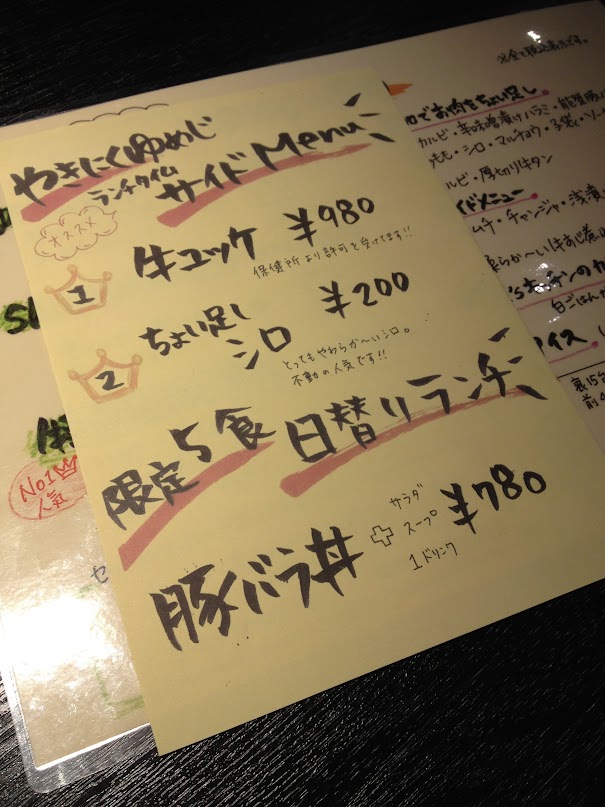 やきにくゆめじ
ランチタイム
サイドMenu
オススメ
1
牛ユッケ ¥980
保健所より許可を受けてます!!
2
ちょい足し
シロ ¥200
とってもやわらか〜いシロ。
不動の人気です!!
限定5食 日替りランチ
豚バラ丼
サラダ
スープ
1ドリンク
¥780
No1
人気
でお肉をちょい足し
カルビ・辛味噌漬けハラミ・
もも・シロ・マルチョウ・子袋・ソー
ルビ・厚切り牛タン
イドメニュー
ムチ・チャンジャ・浅漬
らか〜い牛すじ煮
キッチンの
白ごはん
アイス